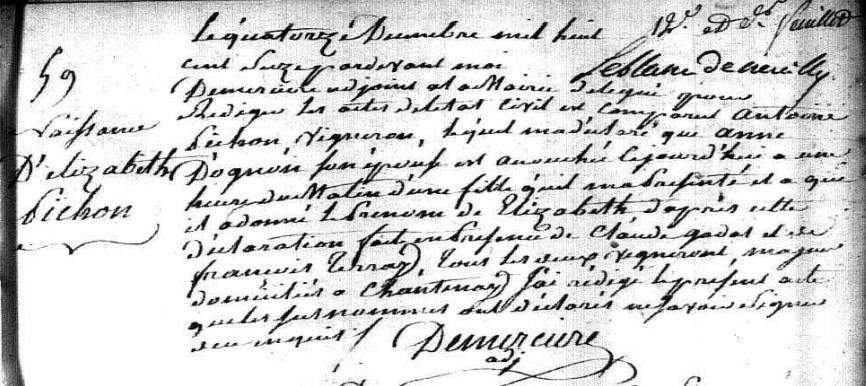 Le quatorze Décembre mil huit
12e et Dr feuillet
cent seize pardevant moi
Leblanc de neuilly
59
Demerciere adjoint a la Mairie delegué pour
Rediger les actes de letat civil est comparu antoine
Naissance
Pichon, vigneron, lequel ma déclaré que anne
D'elizabeth
Dognon son épouse est accouchée lejourd'hui a une
Pichon
heure du Matin d'une fille quil ma presenté et a qui
il a donné le prenom de Elizabeth d'après cette
déclaration fait en presence de Claude gadat et de
francois terray, tous les deux vignerons, majeurs
domiciliés a Chantenay J'ai rédigé le présent acte
que les susnommés ont déclarés ne savoir signer
de ce enquis /
Demerciere
adj